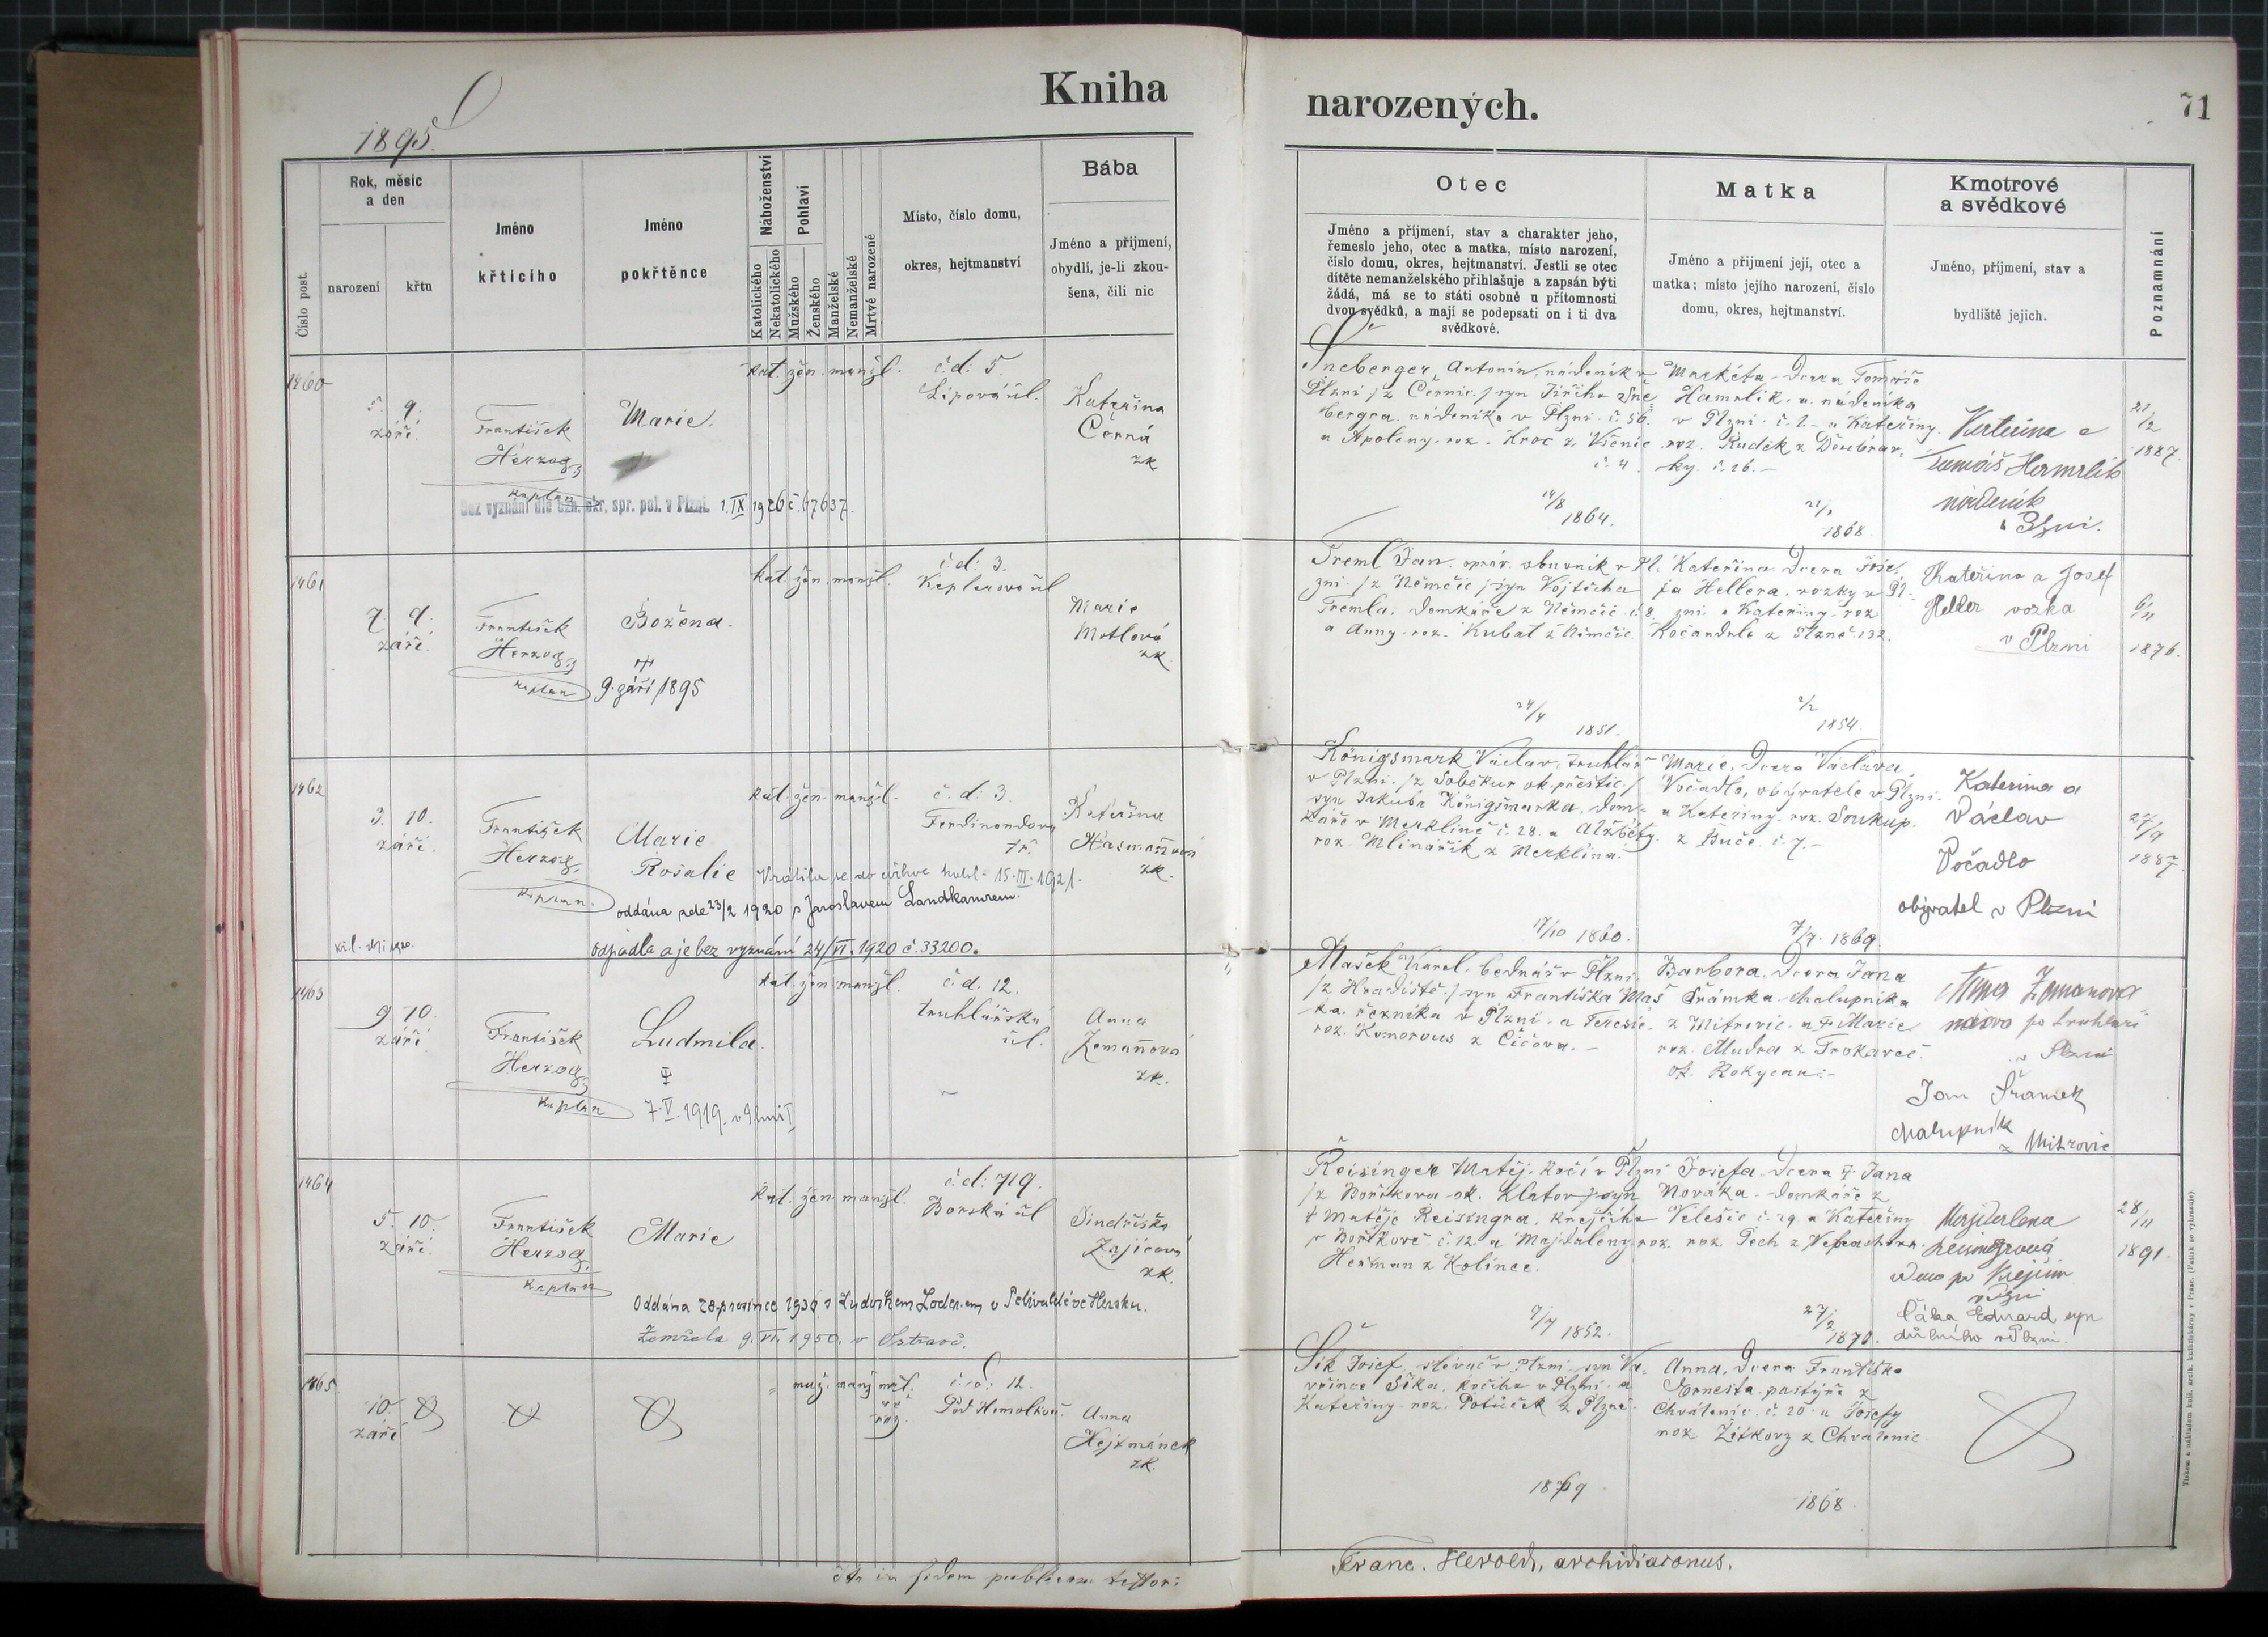 Kniha
narozených.
71
1895.
Číslo post.
Rok, měsíc
a den
narození
křtu
Jméno
křtícího
Jméno
pokřtěnce
Náboženství
Katolického
Nekatolického
Pohlaví
Mužského
Ženského
Manželské
Nemanželské
Mrtvé narozené
Místo, číslo domu,
okres, hejtmanství
Bába
Jméno a příjmení,
obydlí, je-li zkou-
šena, čili nic
Otec
Jméno a příjmení, stav a charakter jeho,
řemeslo jeho, otec a matka, místo narození,
číslo domu, okres, hejtmanství. Jestli se otec
dítěte nemanželského přihlašuje a zapsán býti
žádá, má se to státi osobně u přítomnosti
dvou svědků, a mají se podepsati on i ti dva
svědkové.
Matka
Jméno a příjmení její, otec a
matka; místo jejího narození, číslo
domu, okres, hejtmanství.
Kmotrové
a svědkové
Jméno, příjmení, stav a
bydliště jejich.
Poznamnání
1460
5. 9.
září.
František
Herzog
kaplan
Marie.
kat. žen. manžl.
č.d. 5.
Lipová ul.
Kateřina
Černá
zk.
Bez vyznání dle ozn. okr. spr. pol. v Plzni. 1.IX 1926 č. 67637.
Šneberger Antonín, nádeník v
Plzni /z Černic/ syn Jiřího Šne
bergra, nádeníka v Plzni č. 56.
a Apoleny roz. Kroc z Vícenic
č. 4.
14/8
1864.
Markéta dcera Tomáše
Hamrlík-a nádeníka
v Plzni č. 2. a Kateřiny
roz. Rudik z Doubrav-
ky č. 26.
21/1
1868
Kateřina a
Tomáš Hamrlík
nádeník
v Plzni.
21/2
1887.
1461
7. 9.
září.
František
Herzog
kaplan
Božena.
9. září 1895
kat. žen. manžl.
č.d. 3.
Keplerova ul
Marie
Motlová
zk.
Treml Jan, správ. obuvník v Pl-
zni /z Němčic/ syn Vojtěcha
Tremla, domkáře z Němčic č. 8.
a Anny roz. Kubat z Němčic.
24/4
1851.
Kateřina dcera Jose-
fa Hellera, vozky v Pl-
zni a Kateřiny roz.
Kočandrle z Plzně 132.
2/2
1854.
Kateřina a Josef
Heller vozka
v Plzni
6/11
1876.
1462
3. 10.
září.
František
Herzog,
kaplan.
Marie
Rosalie
Vrátila se do církve katol. 15.III.1921.
oddána zde 23/2 1920 s Jaroslavem Landkamrem.
Odpadla a je bez vyznání 24/VI. 1920 č. 33200.
kat. žen. manžel.
č.d. 3.
Ferdinandova
tř.
Kateřina
Hásmanová
zk.
Königsmark Václav, truhlář
v Plzni /z Soběkur ok. přeštic/
syn Jakuba Königsmarka, dom-
káře v Merklíně č. 28. a Alžběty
roz. Mlinařík z Merklína.
17/10 1860.
Marie, dcera Václava
Počadlo, obývatele v Plzni
a Kateřiny roz. Soukup.
z Buče. č. 7.
7/7. 1869.
Katerina a
Václav
Počadlo
obývatel v Plzni
27/9
1887.
1463
9. 10.
září.
František
Herzog
kaplan
Ludmila.
7.V.1919. v Plzni I,
kat. žen. manžl.
č.d. 12.
truhlářská
ul.
Anna
Zemanová
zk.
Mašek Karel, bednář v Plzni,
/z Hradiště/ syn Františka Maš
ka, řezníka v Plzni a Terezie
roz. Komorous z Čičova.
Barbora, dcera Jana
Šrámka chalupníka
z Mitrovic a † Marie
roz. Mudra z Trokavec.
ok. Rokycan.
Anna Zemanova
vdova po truhláři
v Plzni
Jan Šrámek
chalupník
z Mitrovic
1464
5. 10.
září.
František
Herzog,
kaplan
Marie
kat. žen. manžl.
č.d. 719.
Borská ul
Jindřiška
Zajícová
zk.
Oddána 28. prosince 1936 s Ludvíkem
Zemřela 9.VI. 1950. v Ostravě.
Reisinger Matěj, kočí v Plzni
/z Boříkova ok. Klatov/ syn
† Matěje Reisingra, krejčího
v Boříkově č. 12. a Majdaleny roz.
Heřman z Kolince.
9/7 1852.
Josefa, dcera † Jana
Nováka, domkáře z
Velešic č. 29. a Kateřiny
roz. Pech z
27/2
1870.
Majdalena
vdova po krejčím
v Plzni
Čáka Eduard syn
důlního v Plzni.
28/11
1891.
1465
10.
září
muž. manž. mrt.
ve
roz.
č.d. 12.
Pod Homolkou.
Anna
Hejtmánek
zk.
Šik Josef, slévač v Plzni, syn Va-
vřince Šika, kočího v Plzni a
Kateřiny roz. Potůček z Plzně
1869
Anna, dcera Františka
Ernesta pastýře z
Chválenic č. 20 a Josefy
roz. Žitkovy z Chválenic.
1868
in fidem publicam testor:
Franc. Herold, archidiaconus.
Tiskem a nákladem knihč. arcib. knihtiskárny v Praze. (Patisk se vyhrazuje).